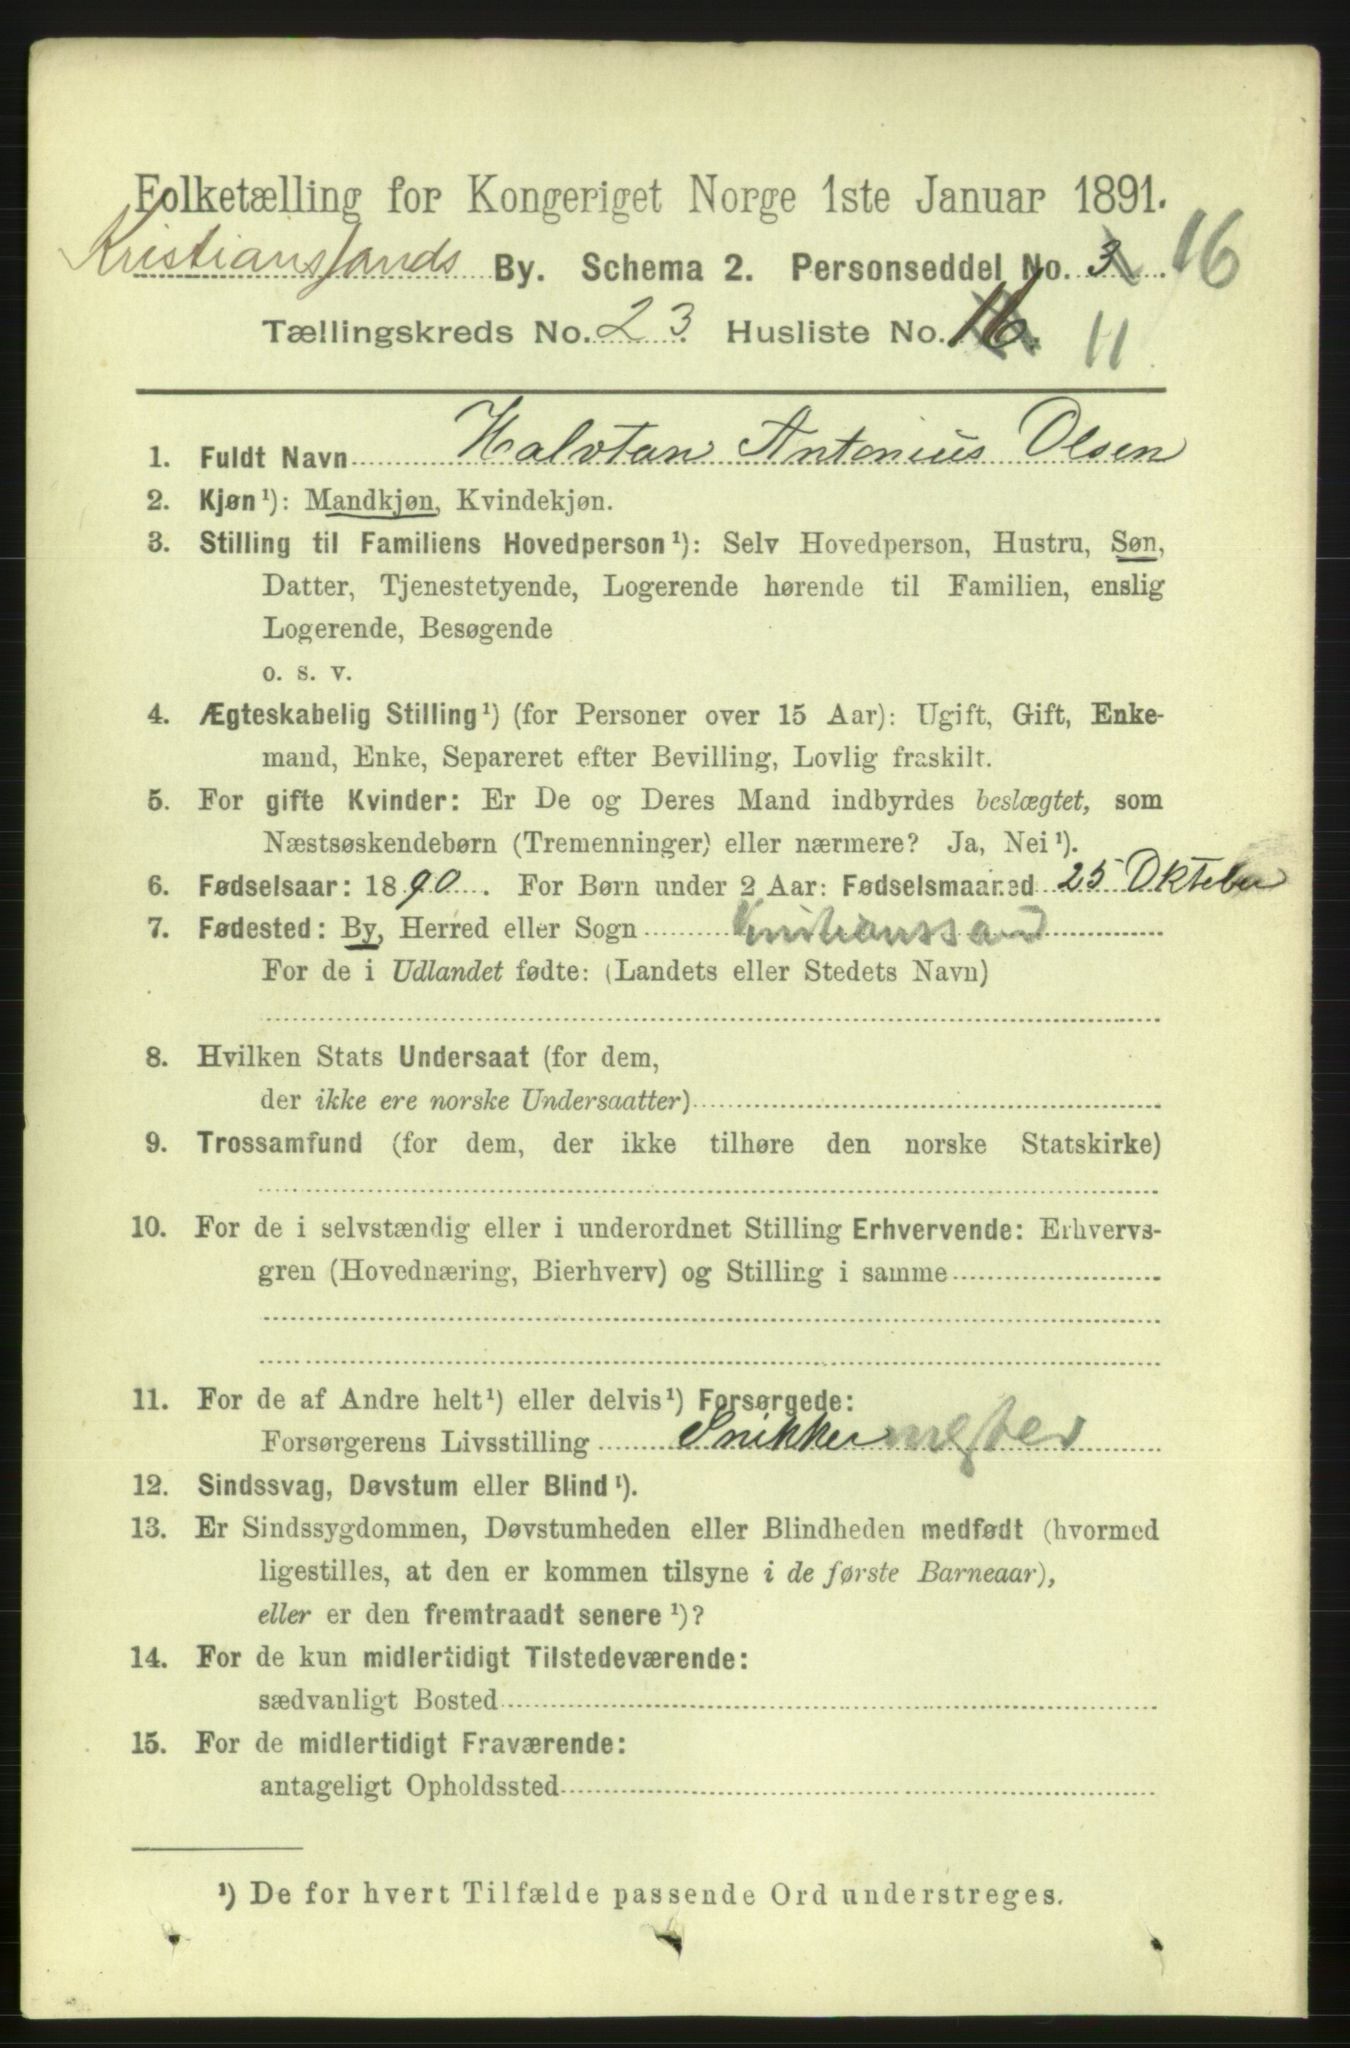 Folketælling for Kongeriget Norge 1ste Januar 1891.
Kristianssands By. Schema 2. Personseddel No. 3 16
Tællingskreds No. 23. Husliste No. 16. 11
1. Fuldt Navn Halvtan Antonius Olsen
2. Kjøn¹): Mandkjøn, Kvindekjøn.
3. Stilling til Familiens Hovedperson¹): Selv Hovedperson, Hustru, Søn,
Datter, Tjenestetyende, Logerende hørende til Familien, enslig
Logerende, Besøgende
o. s. v.
4. Ægteskabelig Stilling¹) (for Personer over 15 Aar): Ugift, Gift, Enke-
mand, Enke, Separeret efter Bevilling, Lovlig fraskilt.
5. For gifte Kvinder: Er De og Deres Mand indbyrdes beslægtet, som
Næstsøskendebørn (Tremenninger) eller nærmere? Ja, Nei¹).
6. Fødselsaar: 1890. For Børn under 2 Aar: Fødselsmaaned 25 Oktober
7. Fødested: By, Herred eller Sogn Kristianssand
For de i Udlandet fødte: (Landets eller Stedets Navn)
8. Hvilken Stats Undersaat (for dem,
der ikke ere norske Undersaatter)
9. Trossamfund (for dem, der ikke tilhøre den norske Statskirke)
10. For de i selvstændig eller i underordnet Stilling Erhvervende: Erhvervs-
gren (Hovednæring, Bierhverv) og Stilling i samme
11. For de af Andre helt¹) eller delvis¹) Forsørgede:
Forsørgerens Livsstilling Snikkermester
12. Sindssvag, Døvstum eller Blind¹).
13. Er Sindssygdommen, Døvstumheden eller Blindheden medfødt (hvormed
ligestilles, at den er kommen tilsyne i de første Barneaar),
eller er den fremtraadt senere¹)?
14. For de kun midlertidigt Tilstedeværende:
sædvanligt Bosted
15. For de midlertidigt Fraværende:
antageligt Opholdssted
¹) De for hvert Tilfælde passende Ord understreges.